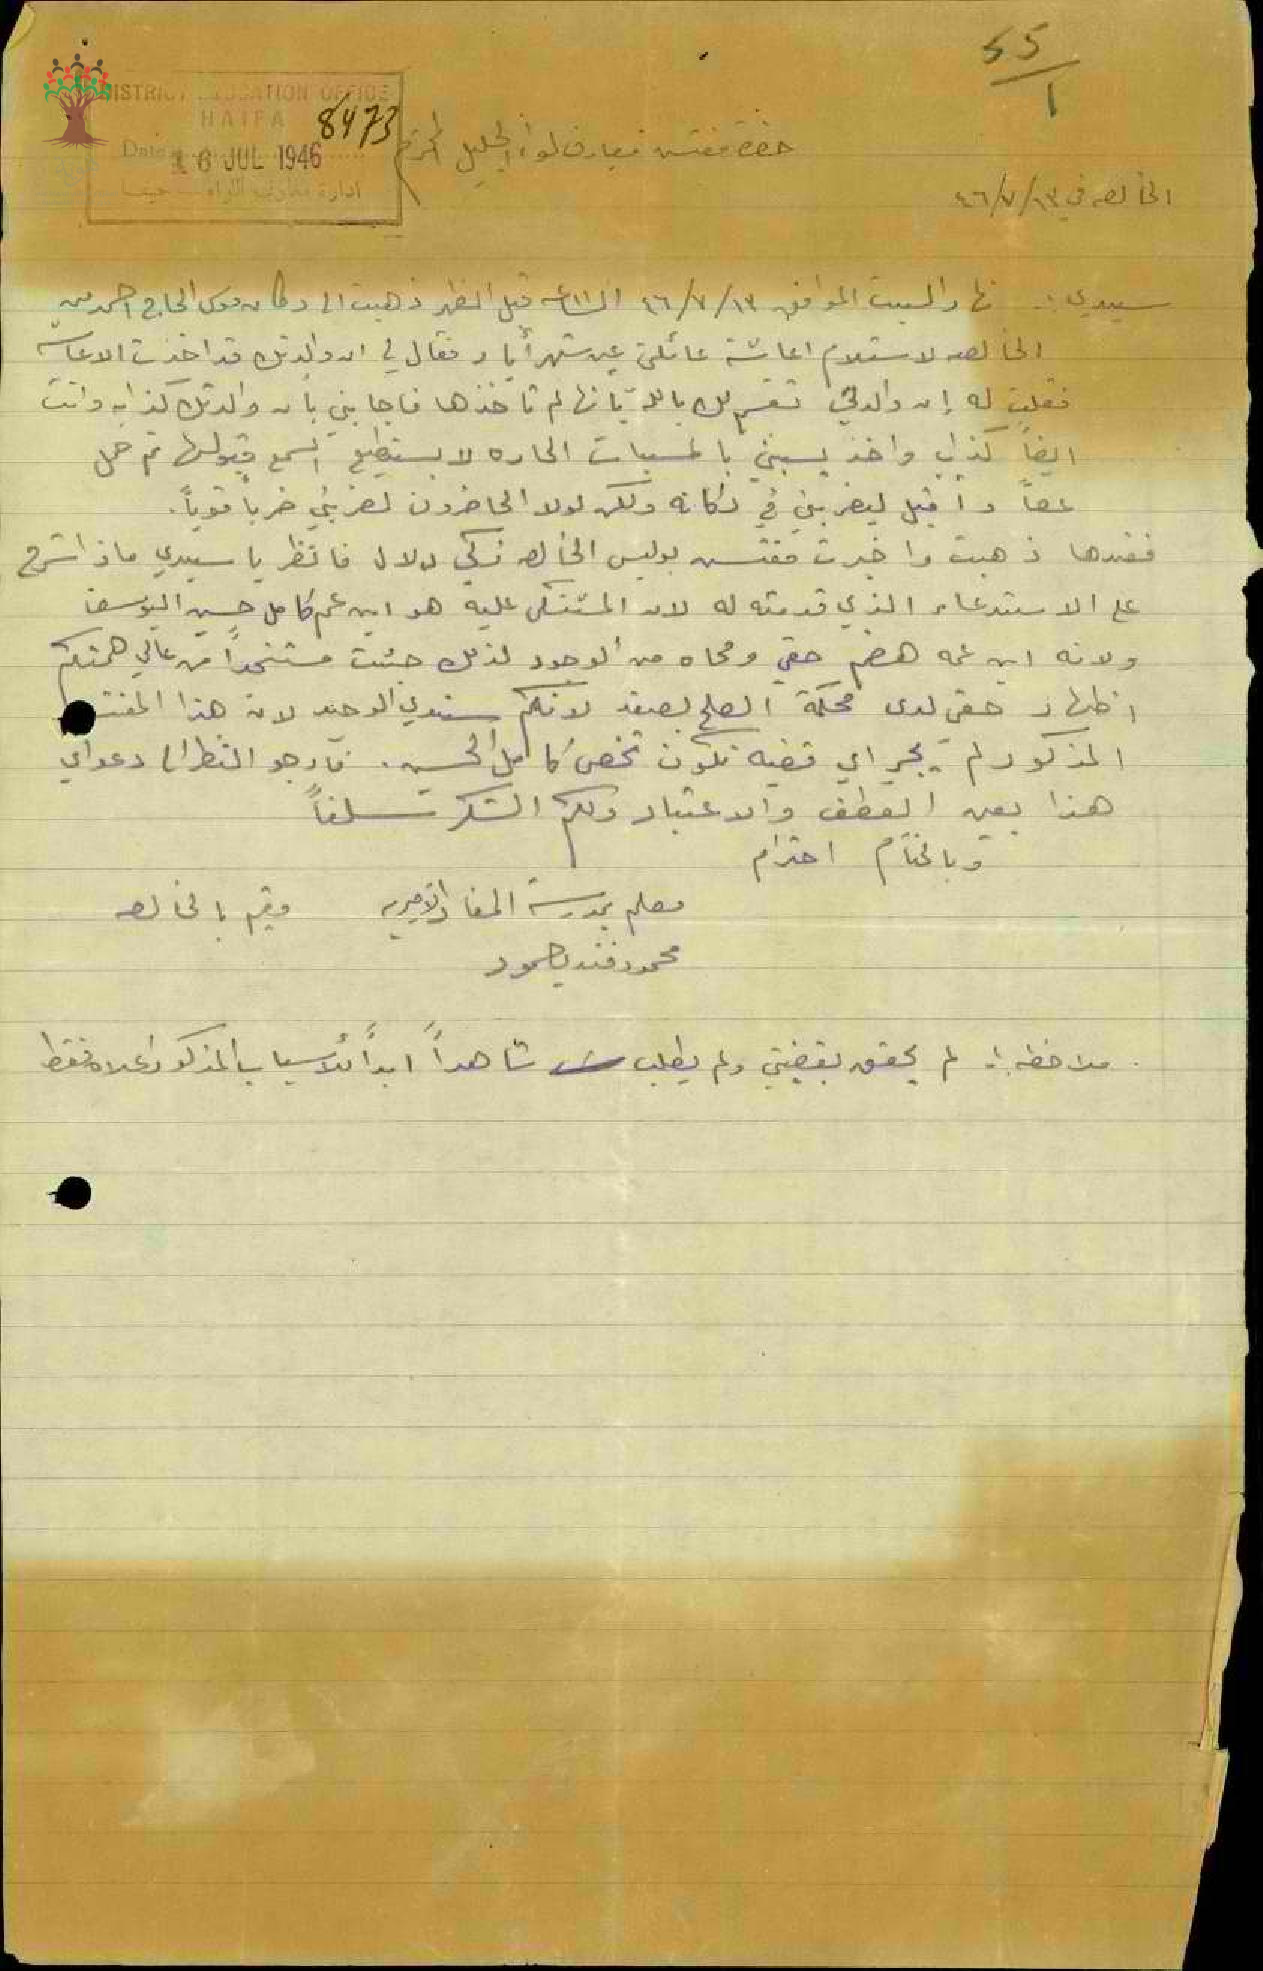 55
1
DISTRICT EDUCATION OFFICE
HAIFA
8473
Date
16 JUL 1946
ادارة معارف اللواء - حيفا
حضرة مفتش معارف لواء الجليل المحترم
الخالصه في ١٣/٧/٤٦
سيدي :. نهار السبت الموافق ١٣/٧/٤٦ الساعه قبل الظهر ذهبت الى دكان موسى الحاج احمد من
الخالصه لاستلام اعاشة عائلتي عن شهر أيار فقال لي ان والدتك قد اخذت الاعاشة
فقلت له إن والدتي تقسم لك بالله بانها لم تأخذها فاجابني بأن والدتك كذابه وانت
ايضاً كذاب واخذ يسبني بالمسبات الحاره لا يستطيع السمع قبولها ثم حمل
عصاً وأقبل ليضربني في دكانه ولكن لولا الحاضرون لضربني ضرباً قوياً.
فعندها ذهبت واخبرت مفتش بوليس الخالصه زكي دلال فانظر يا سيدي ماذا شرح
على الاستدعاء الذي قدمته له لان المشتكى عليه هو ابن عم كامل حسين اليوسف
ولانه ابن عمه هضم حقي ومحاه من الوجود لذلك جئت مستنجداً من عالي همتكم
اظهار حقي لدى محكمة الصلح بصفد لانكم سندي الوحيد لان هذا المفتش
المذكور لم يجر اي قضيه تكون تخص كامل الحسين. فأرجو النظر الى دعواي
هذا بعين العطف والاعتبار ولكم الشكر سلفاً
وبالختام احترام
معلم بمدرسة المغار الاميريه ومقيم بالخالصه
محمود فندي حمود
ملاحظه :. لم يحقق بقضيتي ولم يطلب شاهداً ابداً للأسباب المذكور اعلاه فقط